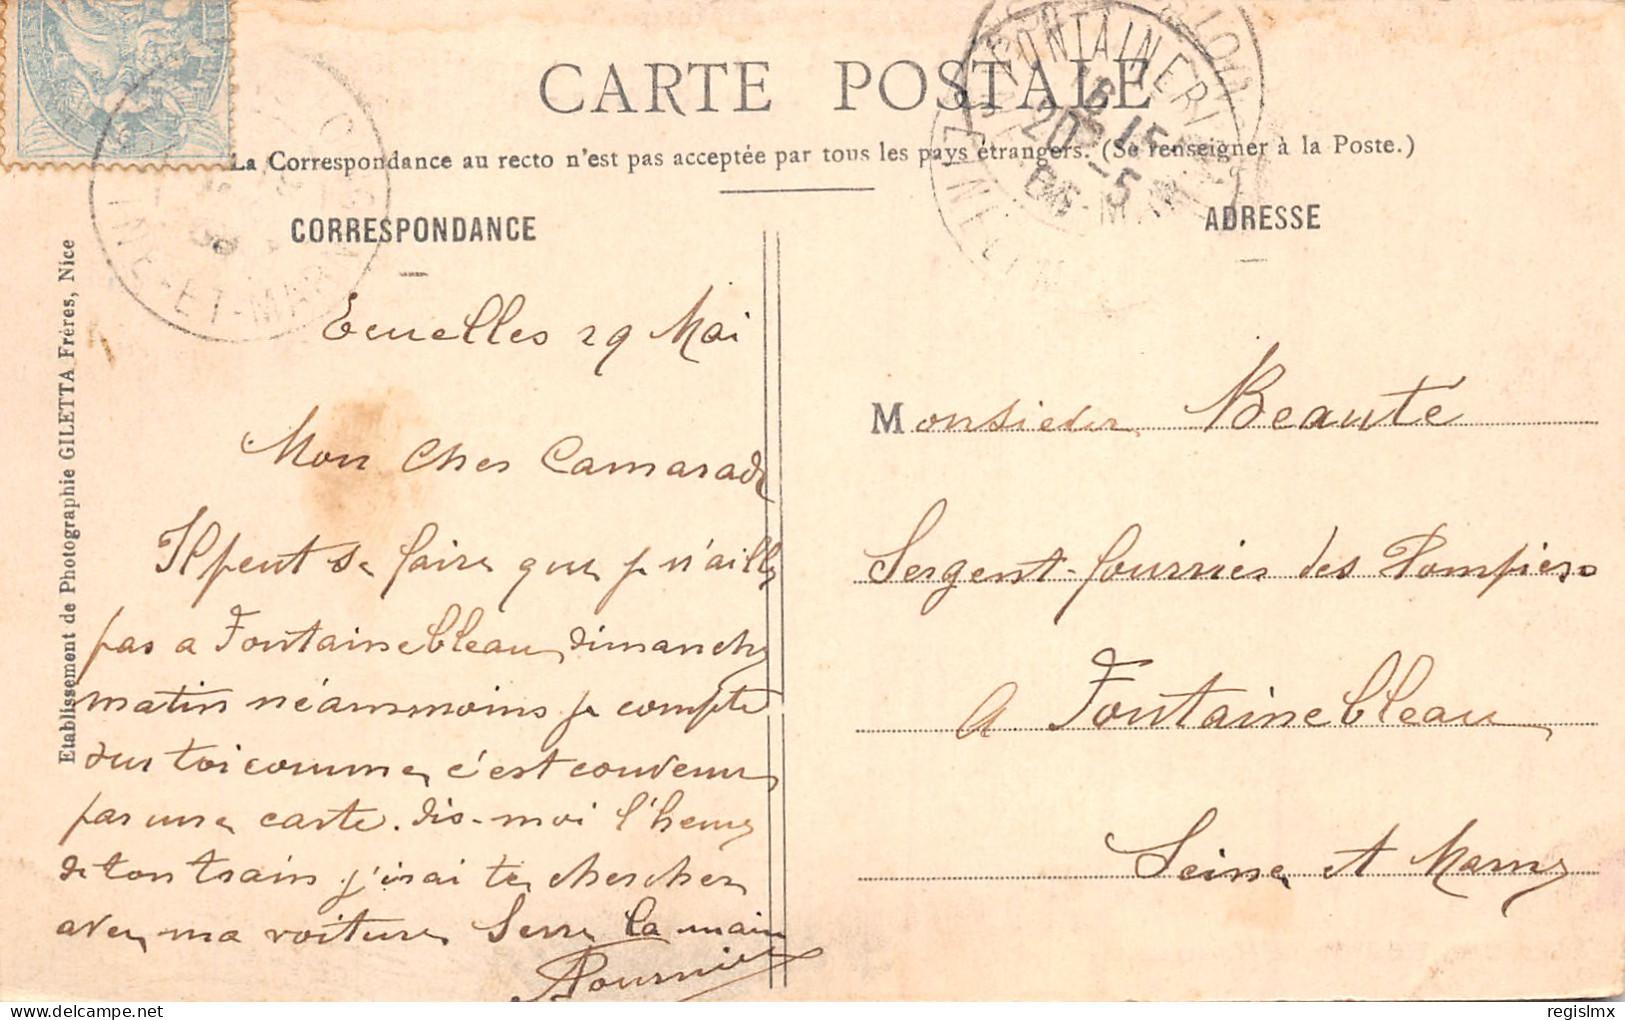 CARTE POSTALE
La Correspondance au recto n'est pas acceptée par tous les pays étrangers. (Se renseigner à la Poste.)
CORRESPONDANCE
29 Mai
Mon Cher Camarade
Il peut se faire que je n'aille
pas a Fontainebleau dimanche
matin néammoins je compte
sur toi comme c'est convenu
par une carte. dis-moi l'heure
de ton train j'irai te chercher
avec ma voiture Serre la main
Fournier
ADRESSE
Monsieur Beaute
Sergent-fourrier des Pompiers
a Fontainebleau
Seine et Marne
Etablissement de Photographie GILETTA Frères, Nice
FONTAINEBLEAU
6 15
20-5
INE-ET-MARNE
regislmx